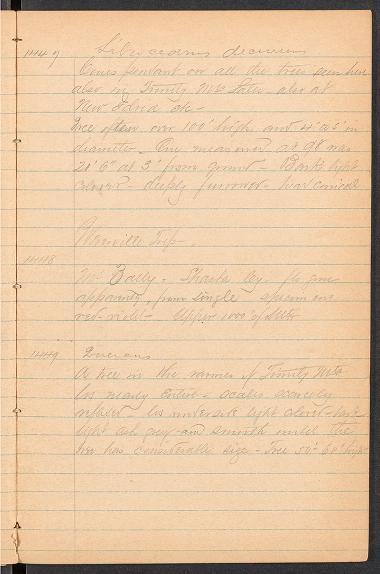 1447 Libocedrus decurrens
Cones pendant on all the trees seen here
also in Trinity Mts Later - also at
New Idria
Tree often over 100' high and 4' a 5' in
diameter - One measured at 98 was
21' 6" at 3' from ground - Bark light
- deeply furrowed -
Trip -
1448
Mt Bally - Shasta Co. fls
apparently, from single specimen
red-violet - Upper 1000' of
1449 Quercus
A tee in the ravines of Trinity Mts
lvs nearly entire - scales scarcely
lvs underside light - bark
light ash grey and smooth until the
tree has considerable size - Tree 50'-60' high